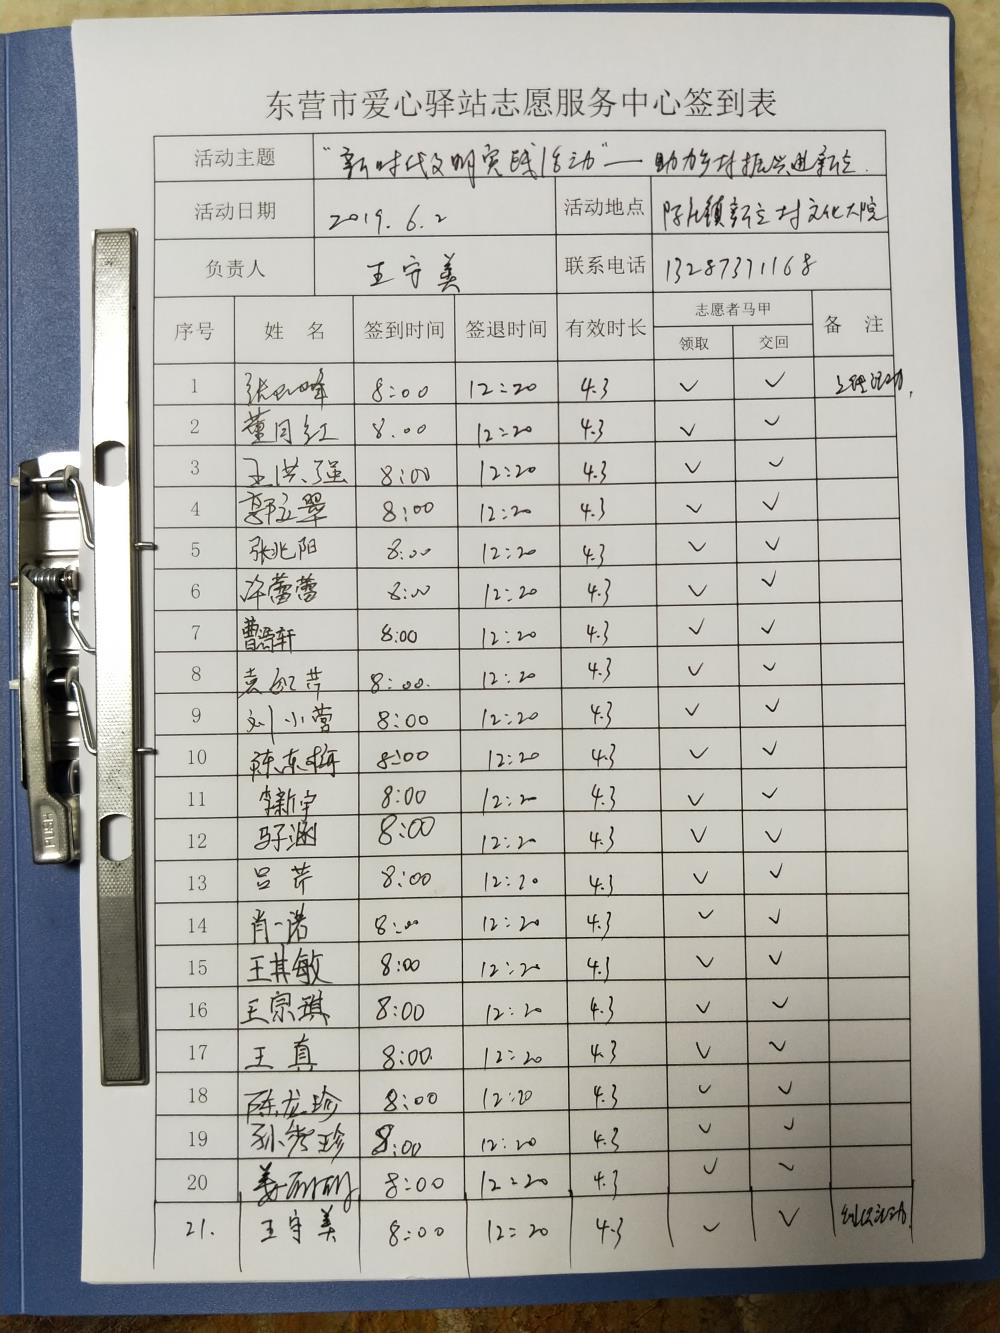 东营市爱心驿站志愿服务中心签到表
活动主题 "新时代文明实践活动"—助力乡村振兴进新立.
活动日期 2019.6.2 活动地点 陈庄镇新立村文化大院
负责人 王守美 联系电话 13287371168
序号 姓 名 签到时间 签退时间 有效时长 志愿者马甲 备 注
领取 交回
1 张 峰 8:00 12:20 4.3 ✓ ✓
2 董月红 8:00 12:20 4.3 ✓ ✓
3 王洪强 8:00 12:20 4.3 ✓ ✓
4 郭立翠 8:00 12:20 4.3 ✓ ✓
5 张兆阳 8:00 12:20 4.3 ✓ ✓
6 许蕾蕾 8:00 12:20 4.3 ✓ ✓
7 曹 轩 8:00 12:20 4.3 ✓ ✓
8 袁红芹 8:00. 12:20 4.3 ✓ ✓
9 刘小营 8:00 12:20 4.3 ✓ ✓
10 陈东梅 8:00 12:20 4.3 ✓ ✓
11 李新宇 8:00 12:20 4.3 ✓ ✓
12 马子涵 8:00 12:20 4.3 ✓ ✓
13 吕芹 8:00 12:20 4.3 ✓ ✓
14 肖一诺 8:00 12:20 4.3 ✓ ✓
15 王其敏 8:00 12:20 4.3 ✓ ✓
16 王宗琪 8:00 12:20 4.3 ✓ ✓
17 王真 8:00 12:20 4.3 ✓ ✓
18 陈龙珍 8:00 12:20 4.3 ✓ ✓
19 孙秀珍 8:00 12:20 4.3 ✓ ✓
20 姜丽丽 8:00 12:20 4.3 ✓ ✓
21. 王守美 8:00 12:20 4.3 ✓ ✓
PUSH